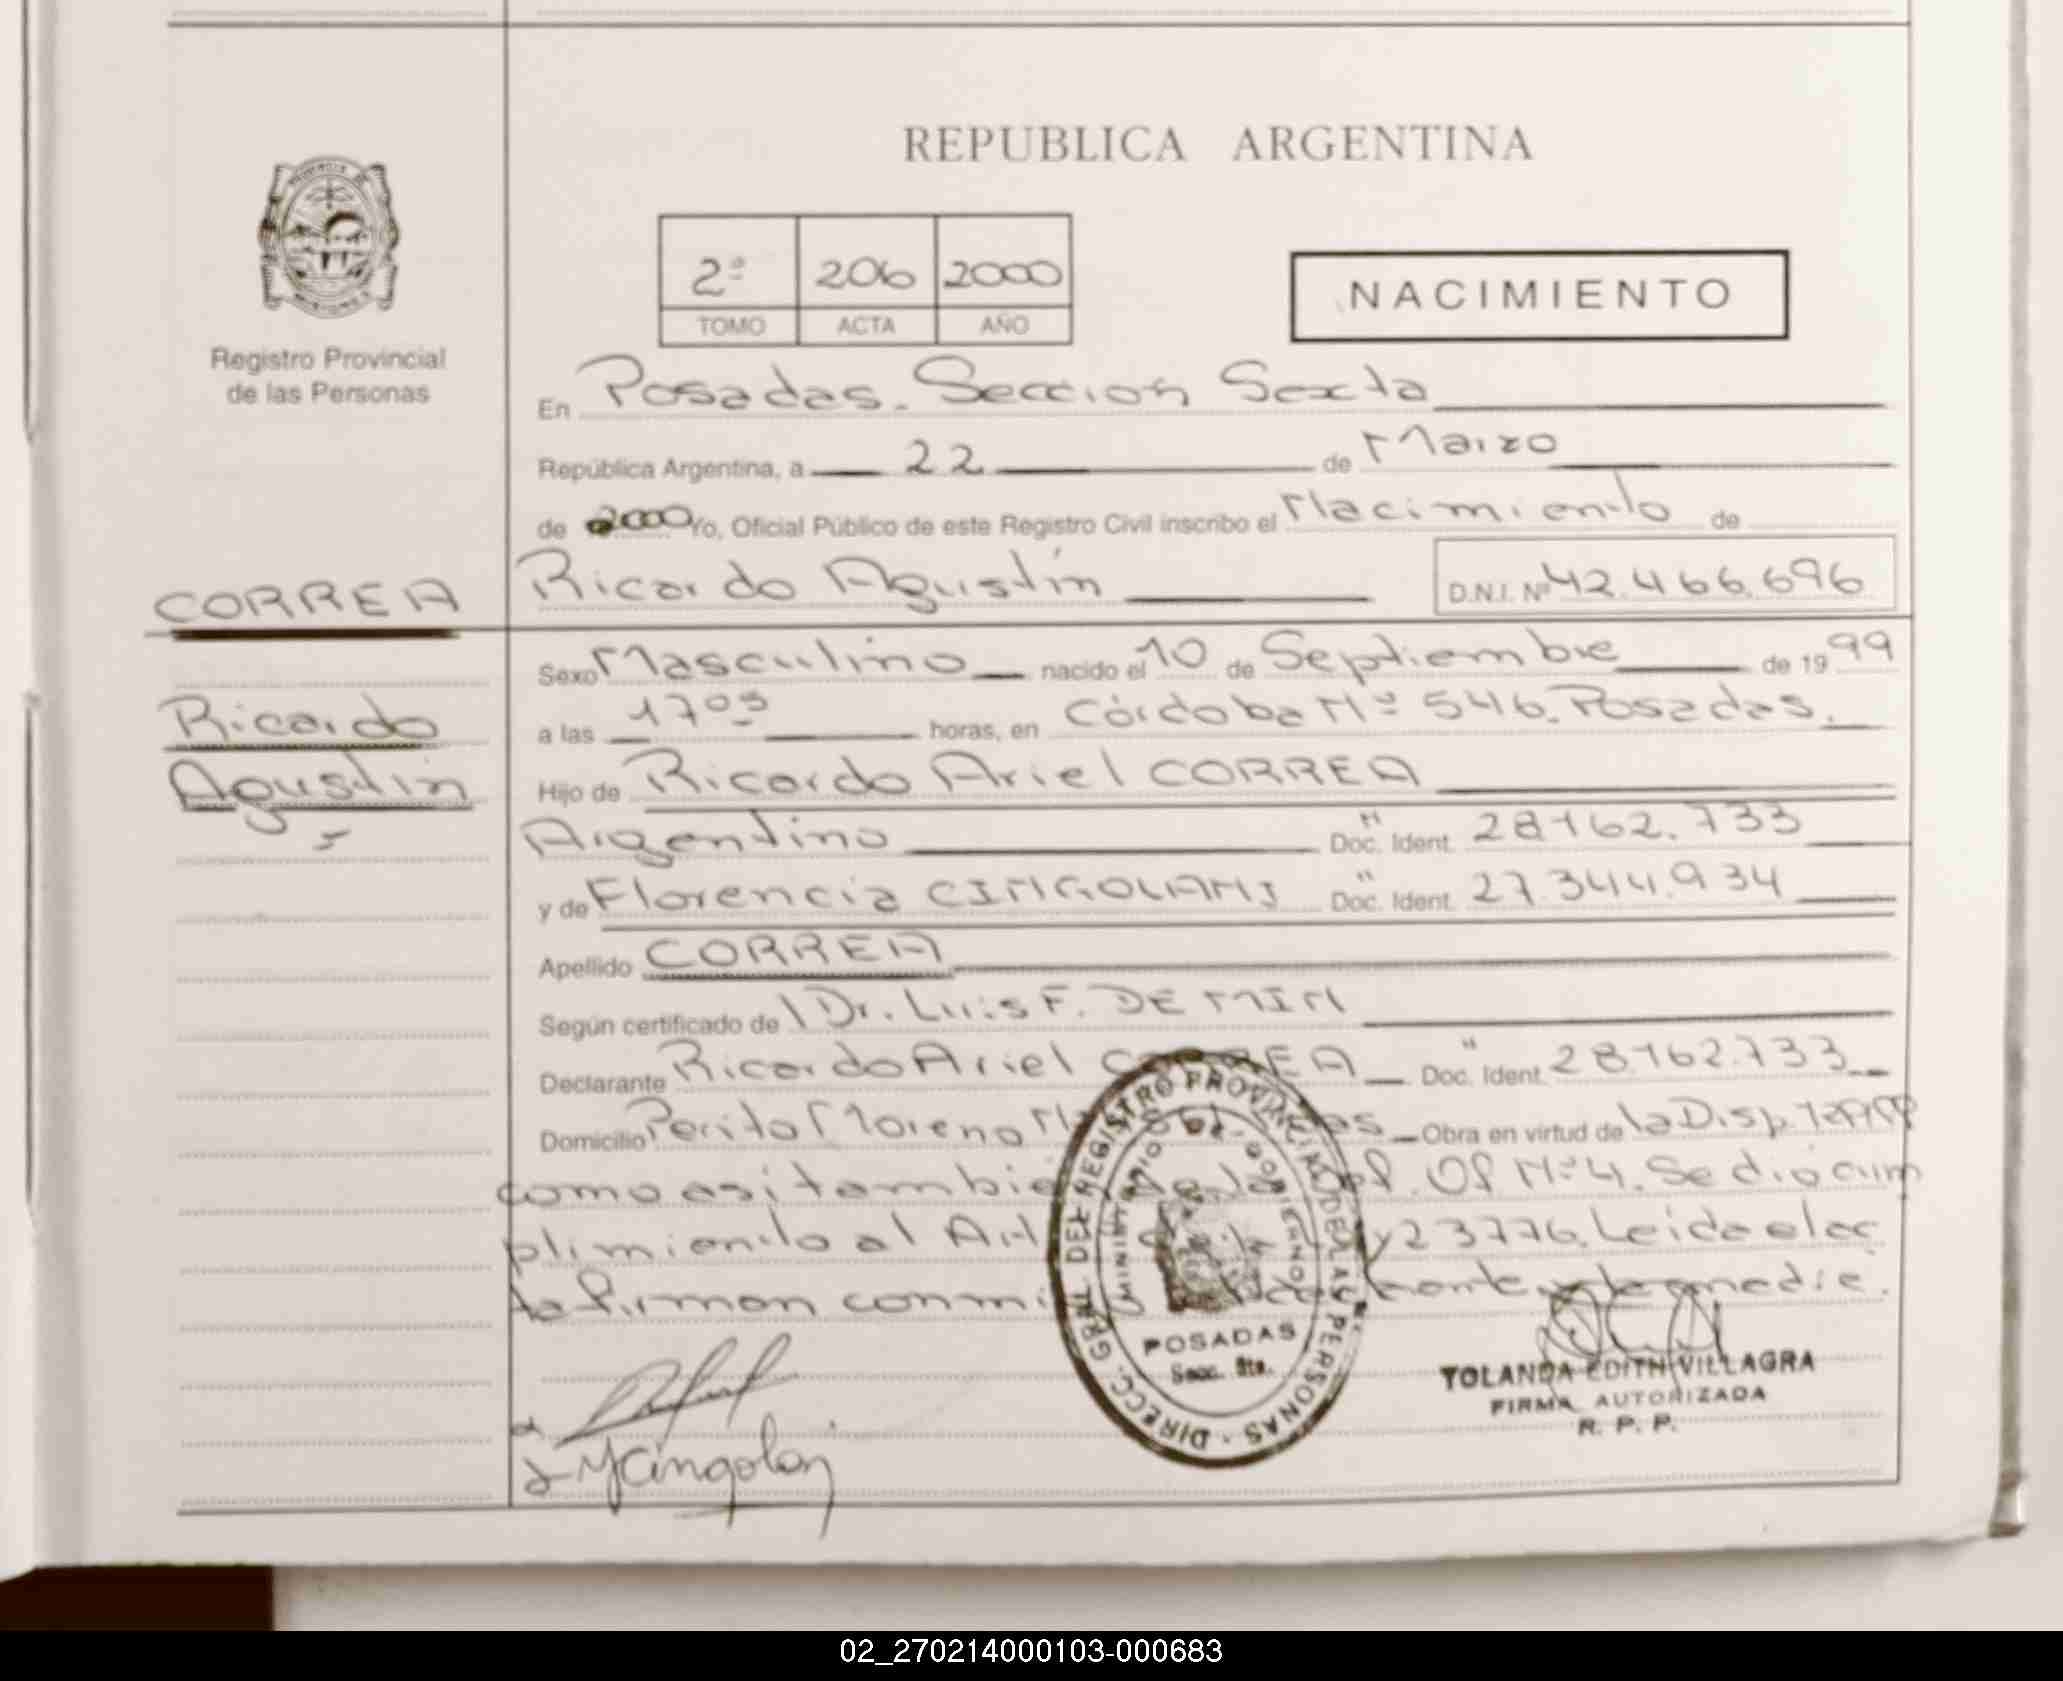 REPUBLICA ARGENTINA
2º 206 2000
TOMO ACTA AÑO
NACIMIENTO
Registro Provincial
de las Personas
En Posadas. Seccion Sexta
República Argentina, a 22 de Marzo
de 2000 Yo, Oficial Público de este Registro Civil inscribo el Nacimiento de
CORREA
Ricardo Agustín
D.N.I. Nº 42.466.696
Sexo Masculino nacido el 10 de Septiembre de 1999
Ricardo
Agustín
a las 17 05 horas, en Córdoba Nº 546. Posadas.
Hijo de Ricardo Ariel CORREA
Argentino Doc. Ident. 28.162.733
y de Florencia CINGOLANI Doc. Ident. 27.344.934
Apellido CORREA
Según certificado de Dr. Luis F. DE MIN
Declarante Ricardo Ariel CORREA Doc. Ident. 28.162.733
Domicilio Perito Moreno Obra en virtud de la Disp.
como asi tambié Of Nº 4. Se dió cum
plimiento al Art 23776. Leida el ac
ta firman conmi madre.
DIRECC. GRAL. DEL REGISTRO PROVINCIAL DE LAS PERSONAS
MINISTERIO DE GOBIERNO
POSADAS
Secc. 6ta.
YOLANDA EDITH VILLAGRA
FIRMA AUTORIZADA
R. P. P.
MCingolani
02_270214000103-000683